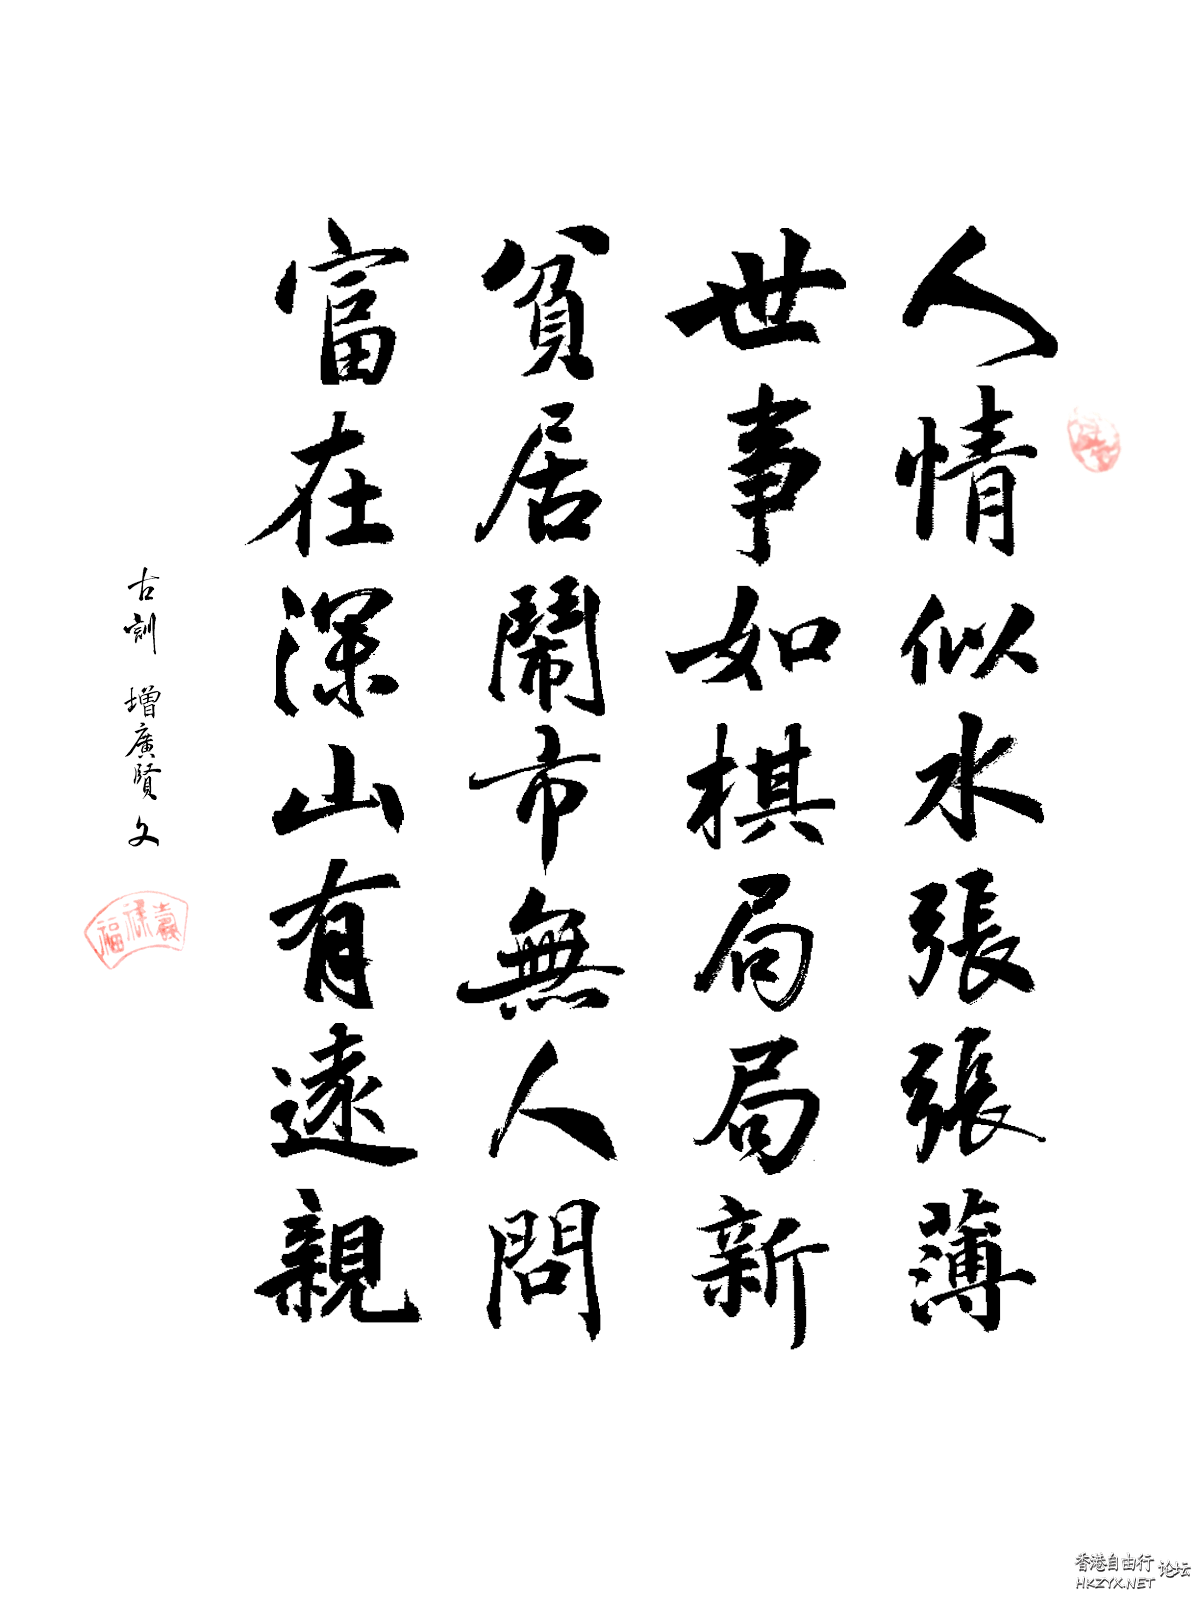 人情似水張張薄
世事如棋局局新
貧居鬧市無人問
富在深山有遠親
古訓 增廣賢文
福祿壽
香港自由行论坛
HKZYX.NET